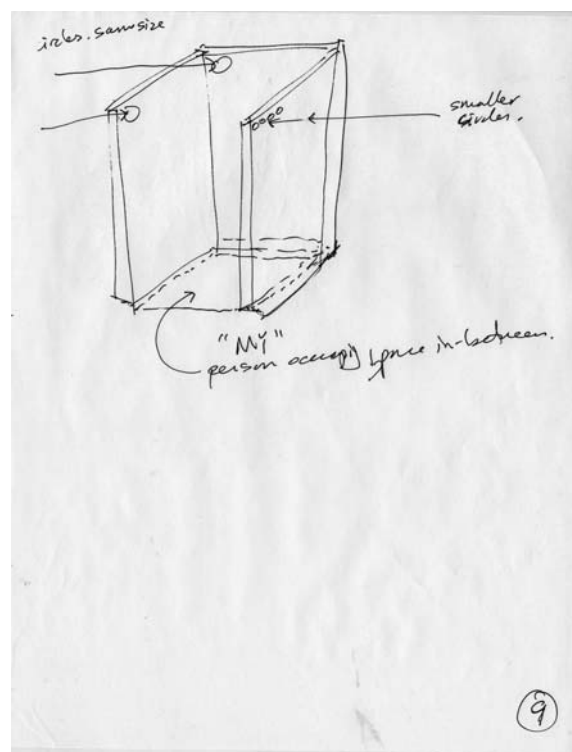 ircles. same size
smaller
circles.
"MY"
person occupying space in-between.
9